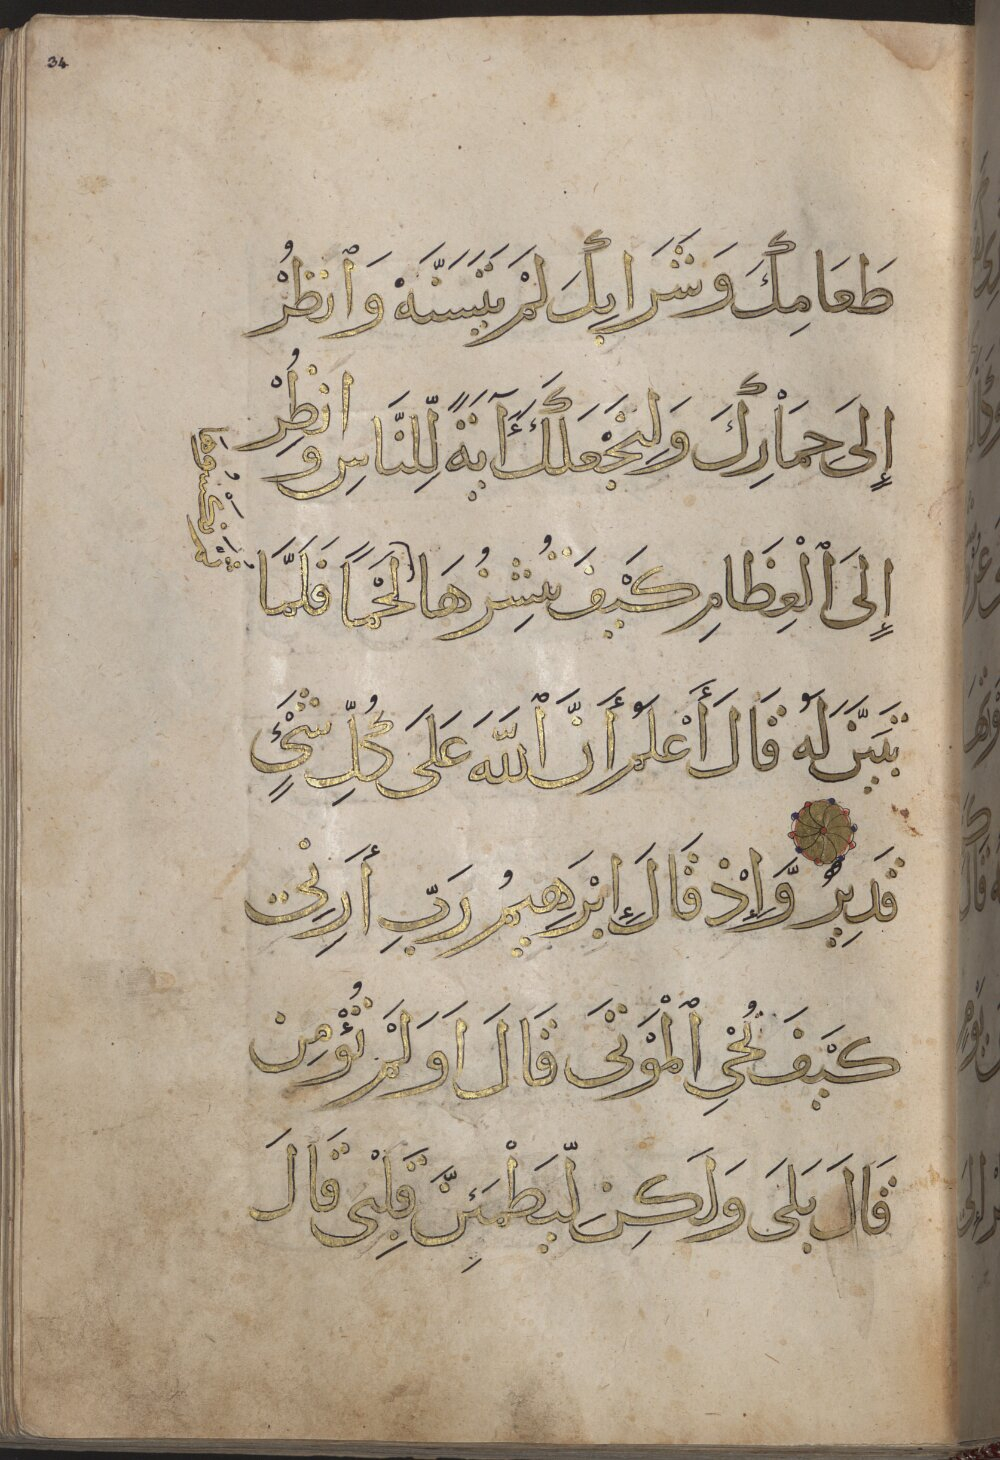 34
طَعَامِكَ وَشَرَابِكَ لَمْ يَتَسَنَّهْ وَٱنظُرْ
إِلَىٰ حِمَارِكَ وَلِنَجْعَلَكَ ءَايَةً لِّلنَّاسِ وَانظُرْ
إِلَى ٱلْعِظَامِ كَيْفَ نُنشِزُهَا لَحْمًا فَلَمَّا
ثُمَّ نَكْسُوهَا
تَبَيَّنَ لَهُ قَالَ أَعْلَمُ أَنَّ ٱللَّهَ عَلَىٰ كُلِّ شَىْءٍ
قَدِيرٌ وَّإِذْ قَالَ إِبْرَٰهِيمُ رَبِّ أَرِنِى
كَيْفَ تُحْىِ ٱلْمَوْتَىٰ قَالَ اَوَلَمْ تُؤْمِن
قَالَ بَلَىٰ وَلَٰكِن لِّيَطْمَئِنَّ قَلْبِى قَالَ